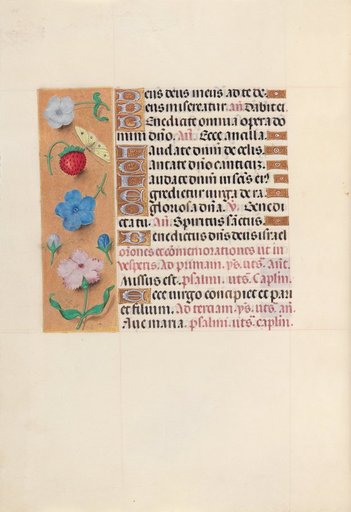 Deus deus meus ad te de.
Deus misereatur. an. Dñs dicet.
Benedicite omnia opera do
mini dño. An. Ecce ancilla.
Laudate dnm de celis.
Cantate dño canticũ.
Laudate dnm in scis eiꝰ
Egredietur uirga de ra.
O gloriosa dña. V. Benedi
cta tu. An. Spiritus sanctus.
Benedictus dñs deus israel
orones et cõmemorationes ut in
vesperis. Ad primam. ys. uts. Ant.
Missus est. psalmi. uts. Caplm.
Ecce uirgo concipiet et pari
et filium. Ad terciam. ys. uts. an.
Aue maria. psalmi. uts. caplm.